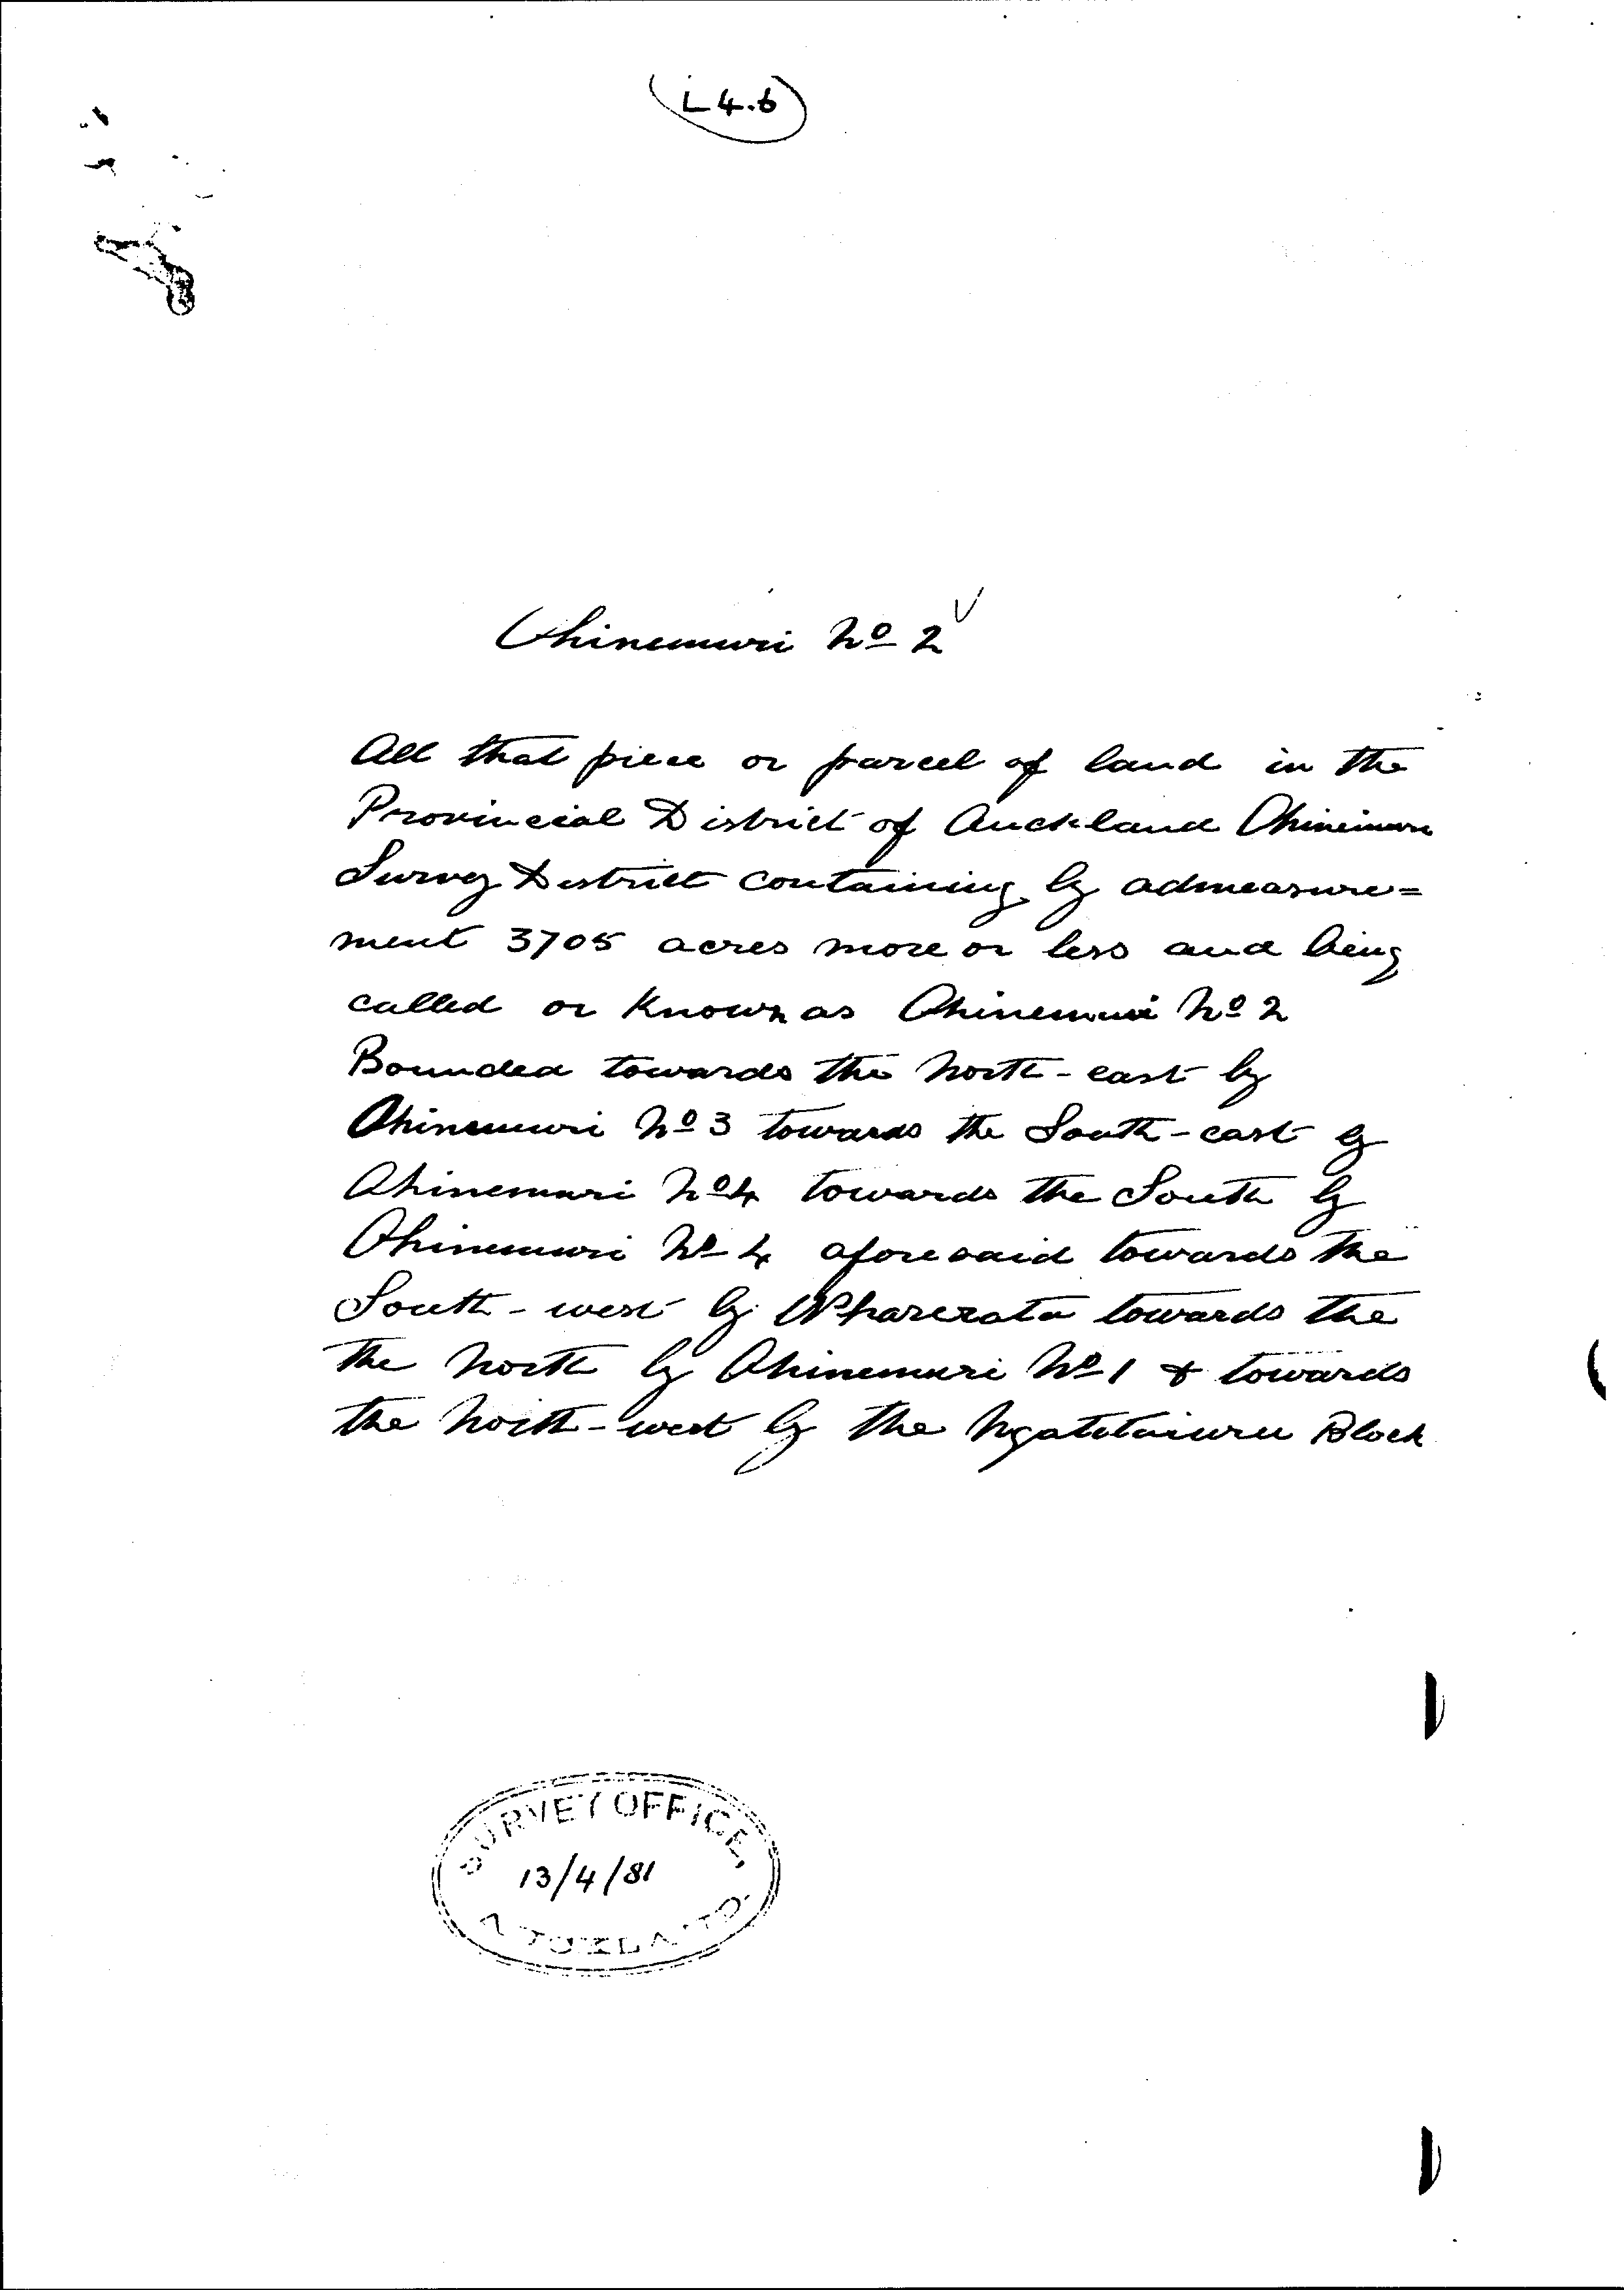 L4.6
Ohinemuri No 2
All that piece or parcel of land in the
Provincial District of Auckland Ohinemuri
Survey District containing by admeasure=
ment 3705 acres more or less and being
called or Known as Ohinemuri No 2
Bounded towards the North-east by
Ohinemuri No 3 towards the South-east by
Ohinemuri No 4 towards the South by
Ohinemuri No 4 aforesaid towards the
South-west by Wharerata towards the
the North by Ohinemuri No 1 & towards
the North-west by the Ngatitaiuru Block
SURVEY OFFICE,
13/4/81
AUCKLAND.